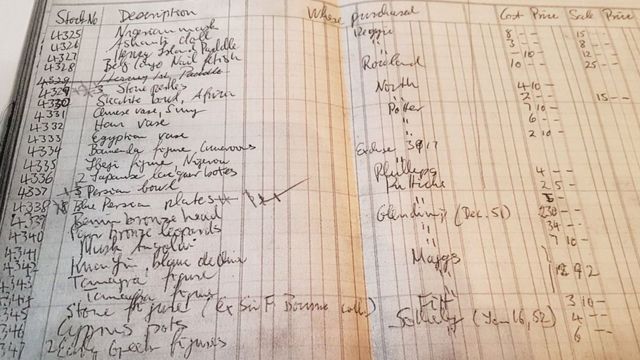 Stock No Description Where purchased Cost Price Sale Price
4325 Nigerian mask Reggie 8 - - 15 - -
4326 Ashanti doll " 3 - - 8 - -
4327 Hervey Island Paddle " 10 - 12 - -
4328 Belg Congo Nail fetish Rowland 10 - - 25 - -
4329 Hervey Isl Paddle
4329 3 Stone pestles North 4 10 -
4330 Steatite bowl, Africa " 2 - - 15 - -
4331 Chinese vase, Sung Potter 7 10 -
4332 Han vase " 6 - -
4333 Egyptian vase " 2 10 -
4334 Bamenda figure Cameroons
4335 Ibeji figure Nigeria
4336 2 Japanese lacquer boxes Phillips 4 - -
4337 Persian bowl 2 5 -
4338 Blue Persian plates
4339 Benin bronze head Glendinng (Dec. 51) 230 - -
4340 Pair bronze leopards " 34 - -
4341 " 7 10 -
4342 Kwanyin, blanc de chine Maggs
4343 Tanagra figure
Tanagra figure
345 Stone figure (Ex Sir F. Bourne coll.) 3 10 -
346 Cyprus pots Sotheby (Jan 16, 52) 4 - -
347 2 Early Greek figures " 6 - -